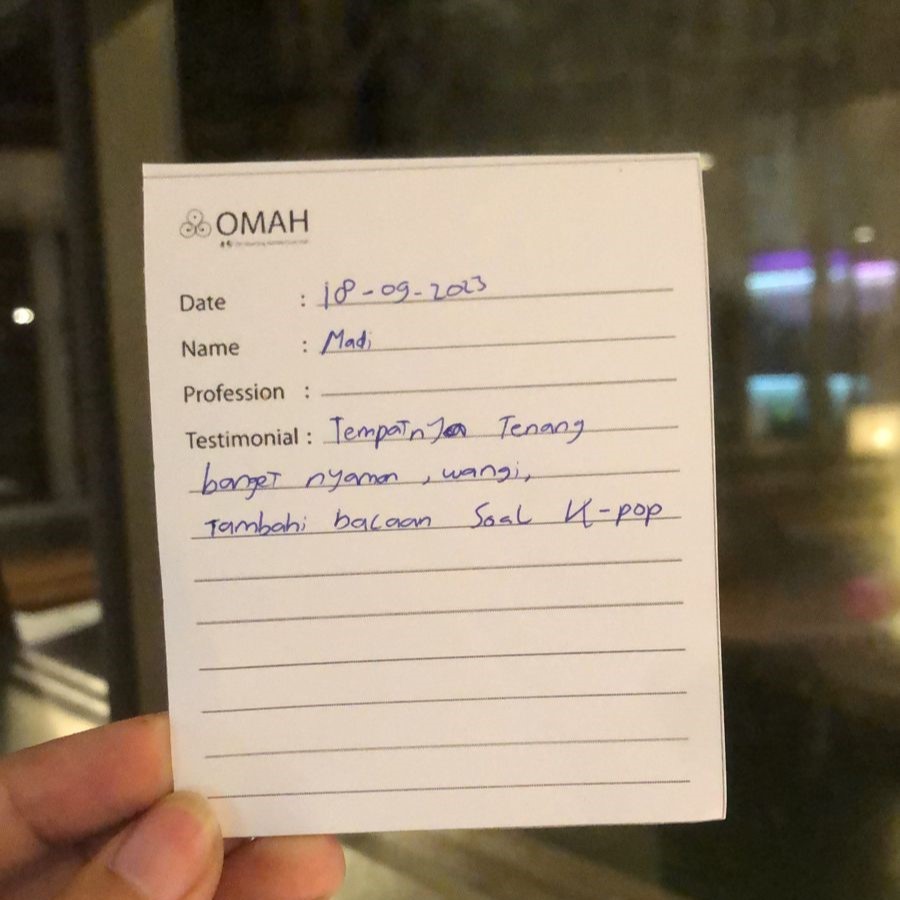 OMAH
Date : 18-09-2023
Name : Madi
Profession :
Testimonial : Tempatnya Tenang
banget nyaman , wangi,
Tambahi bacaan Soal K-pop